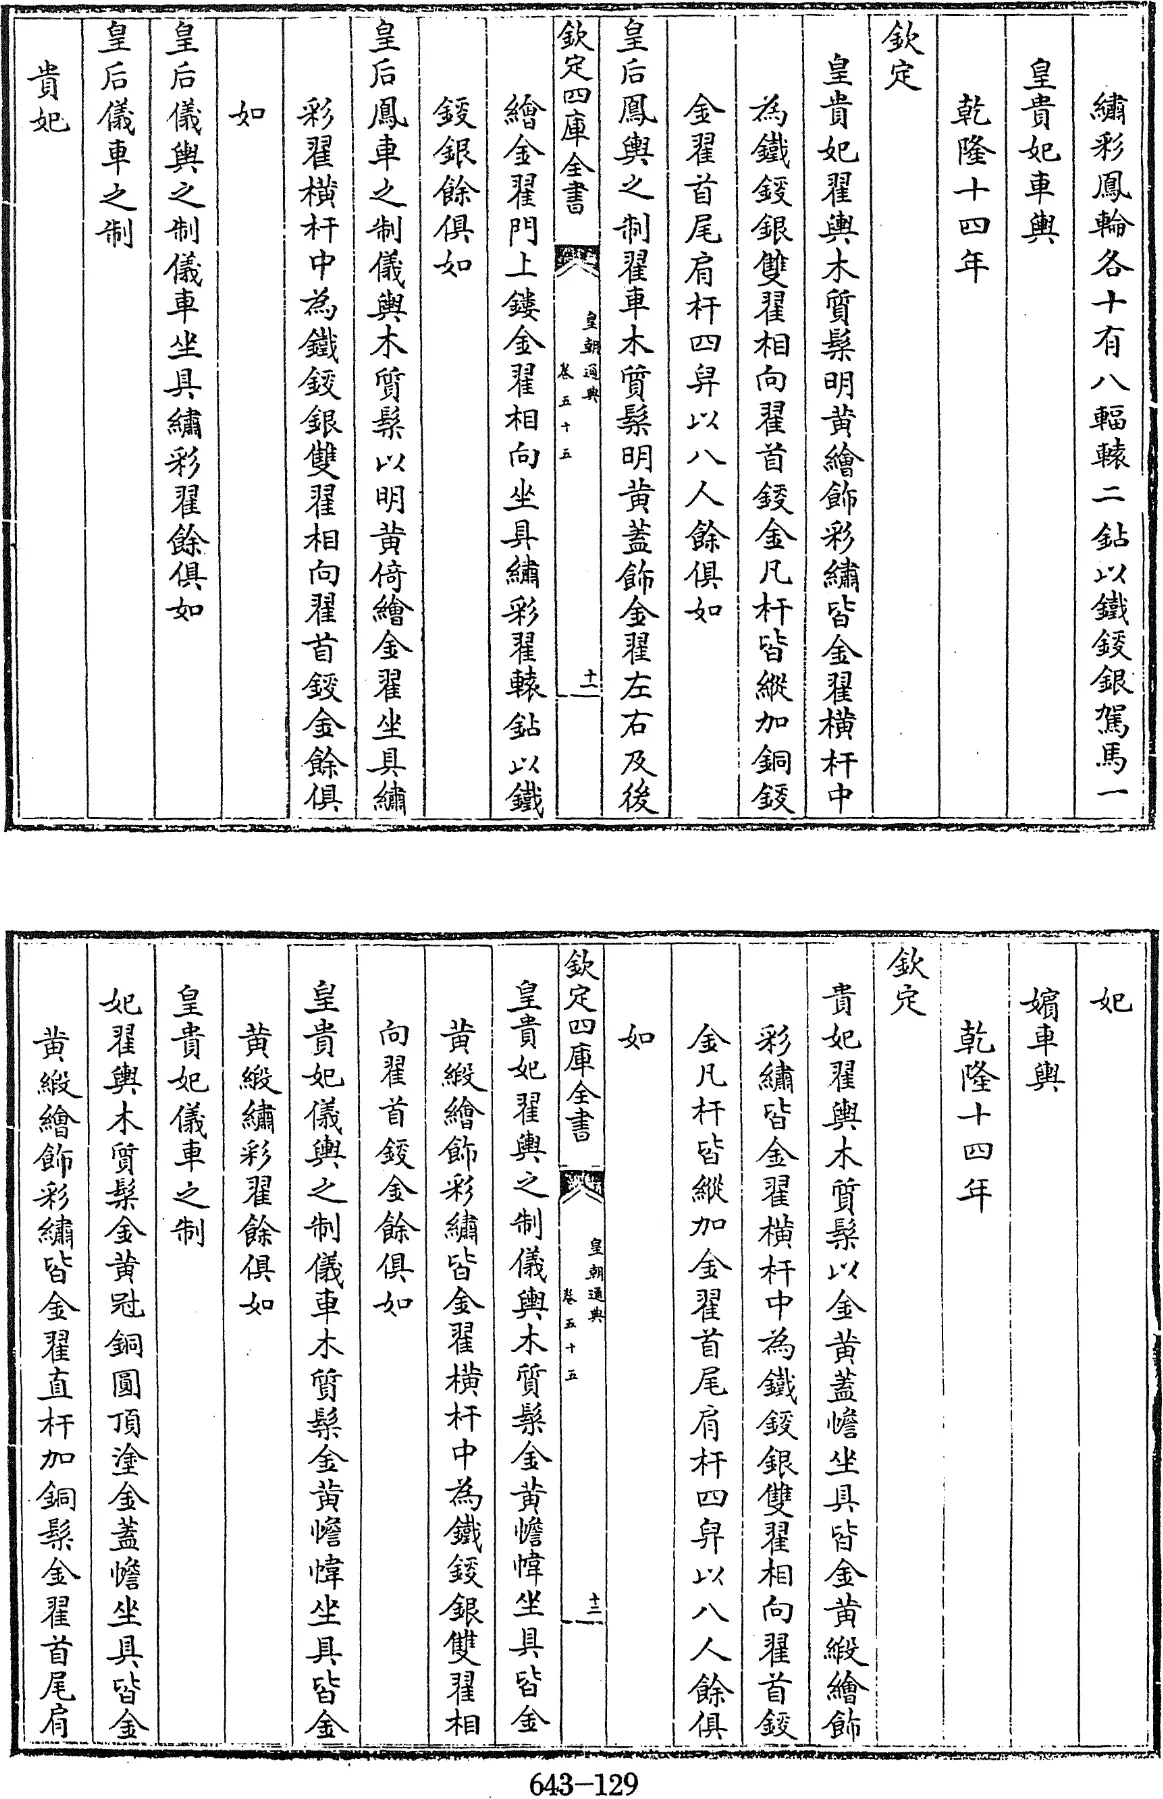 繡彩鳳輪各十有八輻轅二鉆以鐵鋄銀駕馬一
皇貴妃車輿
乾隆十四年
欽定
皇貴妃翟輿木質髹明黃繪飾彩繡皆金翟橫杆中
為鐵鋄銀雙翟相向翟首鋄金凡杆皆縱加銅鋄
金翟首尾肩杆四舁以八人餘俱如
皇后鳳輿之制翟車木質髹明黃蓋飾金翟左右及後
欽定四庫全書
皇朝通典
卷五十五
十二
繪金翟門上鏤金翟相向坐具繡彩翟轅鉆以鐵
鋄銀餘俱如
皇后鳳車之制儀輿木質髹以明黃倚繪金翟坐具繡
彩翟橫杆中為鐵鋄銀雙翟相向翟首鋄金餘俱
如
皇后儀輿之制儀車坐具繡彩翟餘俱如
皇后儀車之制
貴妃
妃
嬪車輿
乾隆十四年
欽定
貴妃翟輿木質髹以金黃蓋幨坐具皆金黃緞繪飾
彩繡皆金翟橫杆中為鐵鋄銀雙翟相向翟首鋄
金凡杆皆縱加金翟首尾肩杆四舁以八人餘俱
如
欽定四庫全書
皇朝通典
卷五十五
十三
皇貴妃翟輿之制儀輿木質髹金黃幨幃坐具皆金
黃緞繪飾彩繡皆金翟橫杆中為鐵鋄銀雙翟相
向翟首鋄金餘俱如
皇貴妃儀輿之制儀車木質髹金黃幨幃坐具皆金
黃緞繡彩翟餘俱如
皇貴妃儀車之制
妃翟輿木質髹金黃冠銅圓頂塗金蓋幨坐具皆金
黃緞繪飾彩繡皆金翟直杆加銅髹金翟首尾肩
643-129